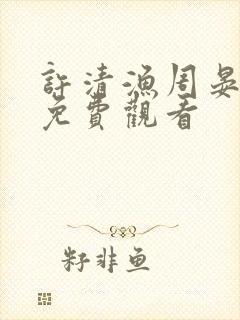 許清漁周晏
免費觀看
籽非鱼